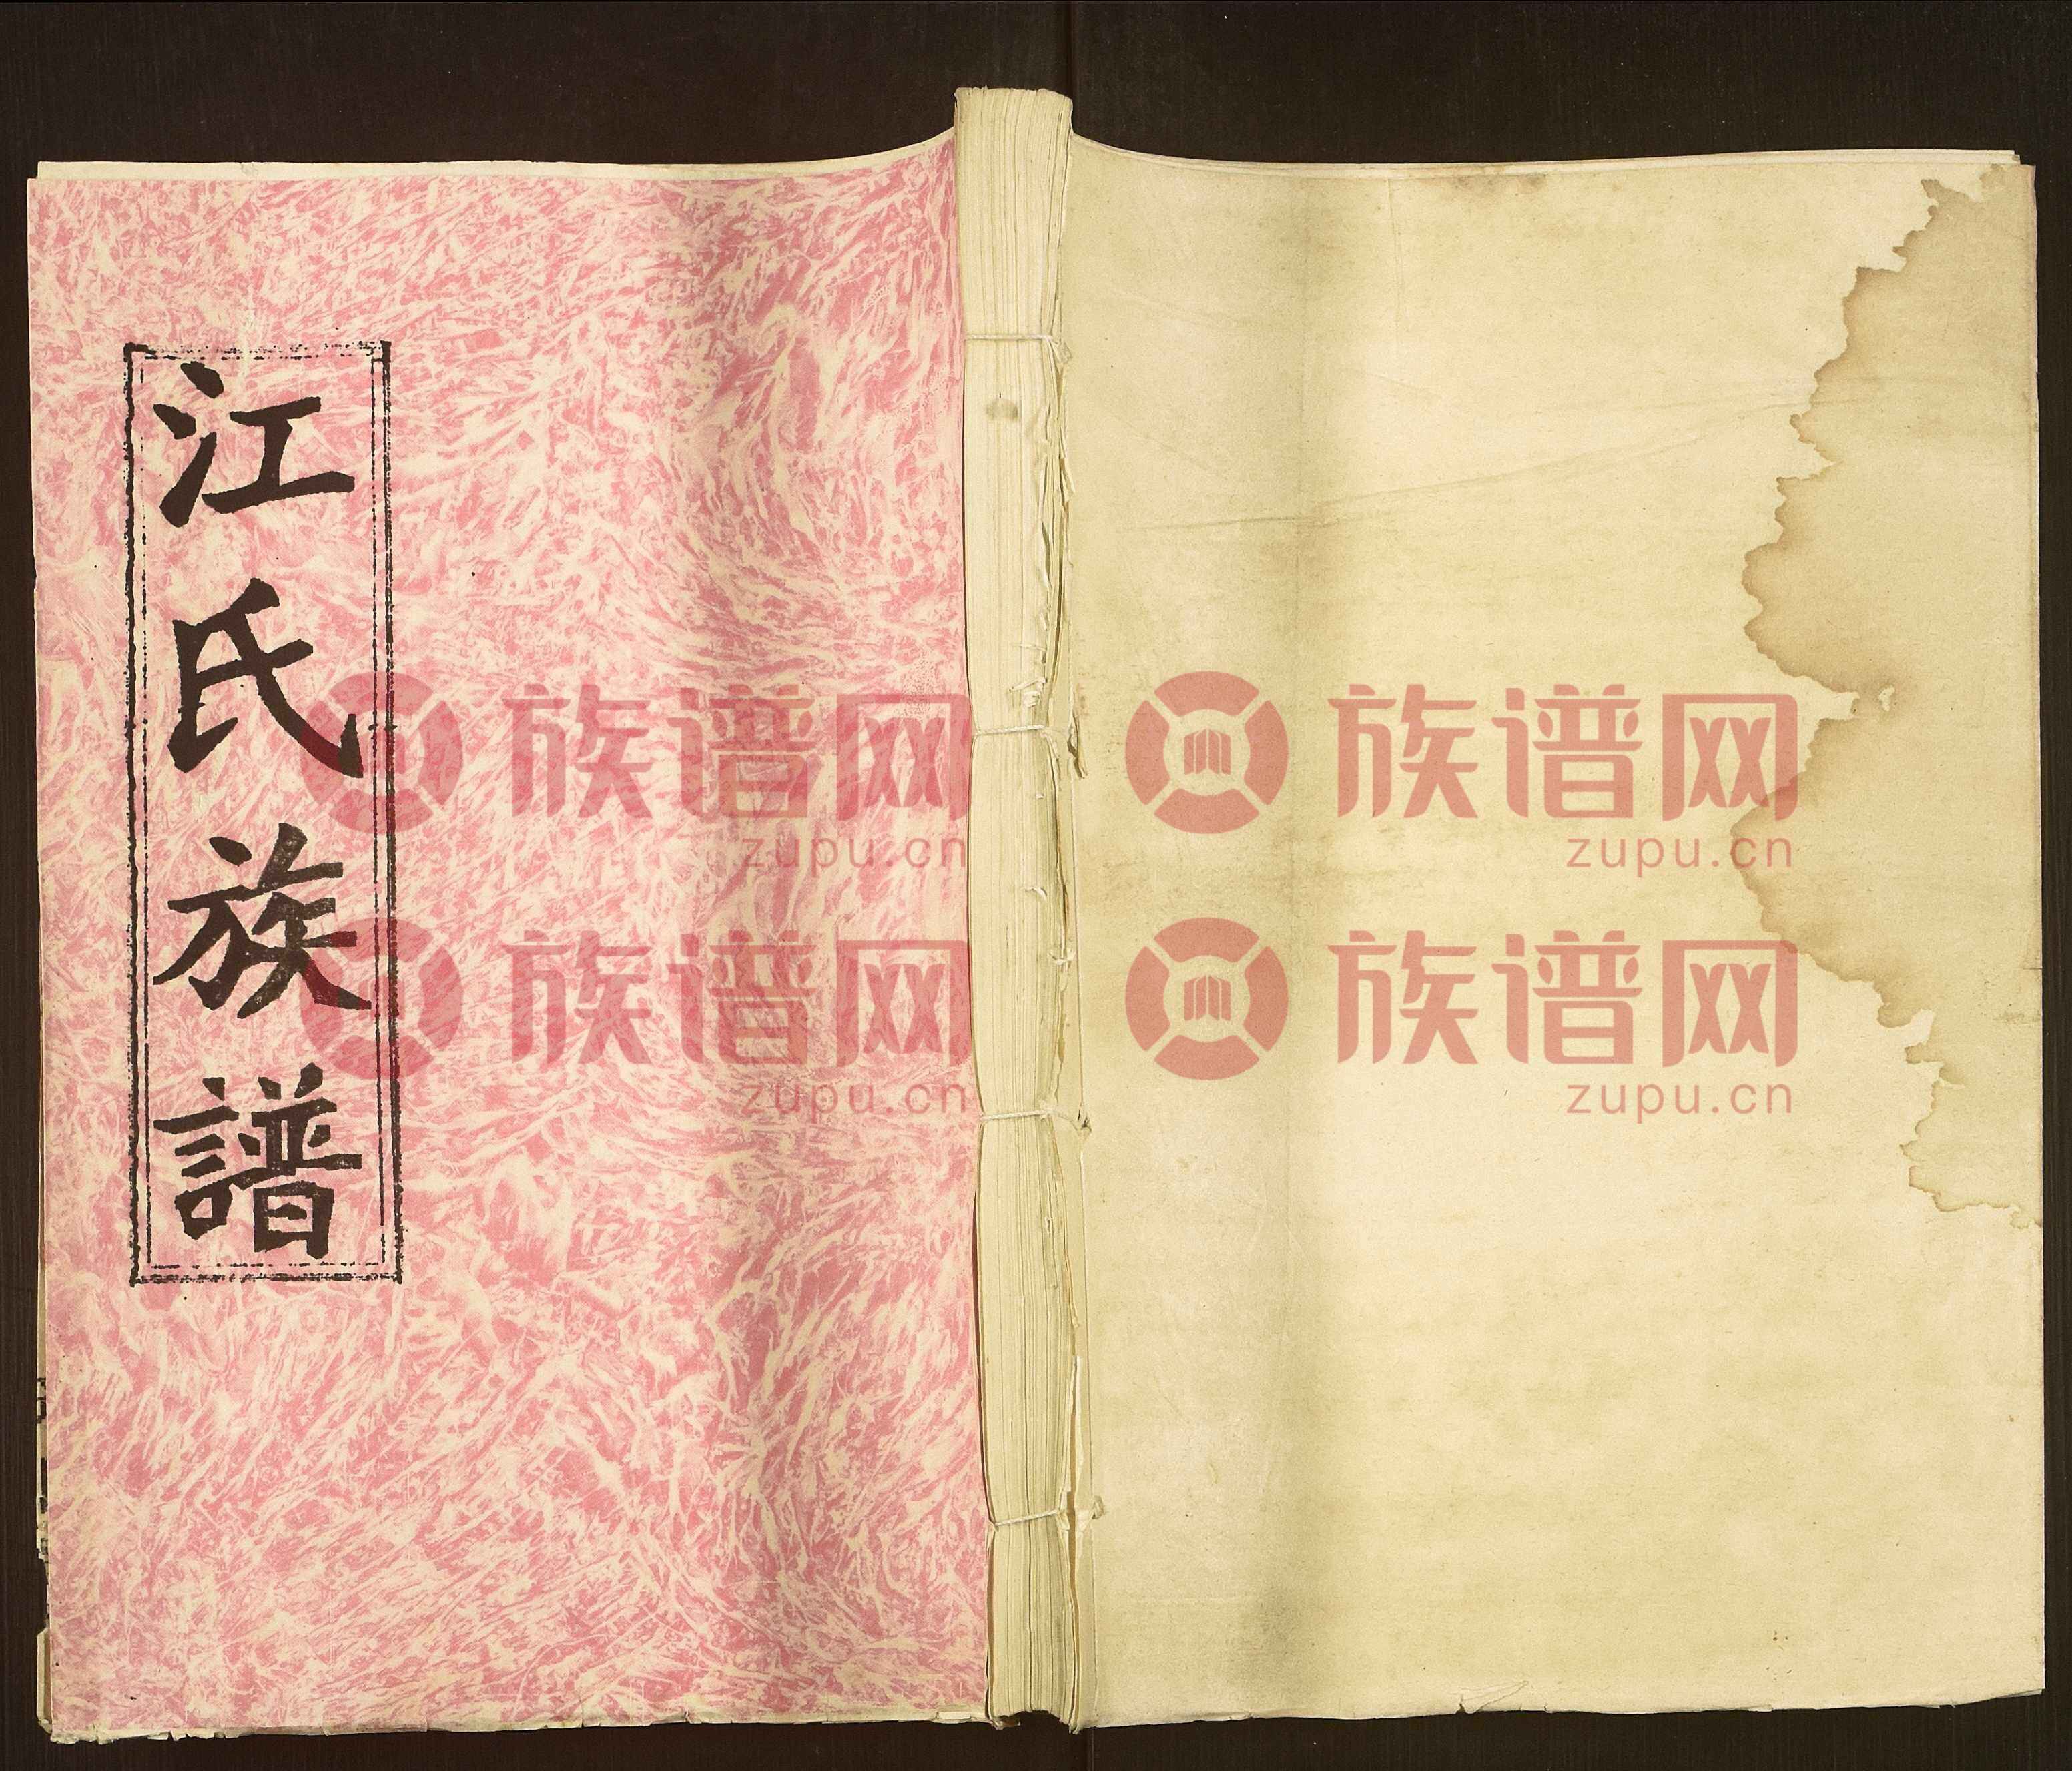 江氏族譜
族谱网
zupu.cn
族谱网
zupu.cn
族谱网
zupu.cn
族谱网
zupu.cn